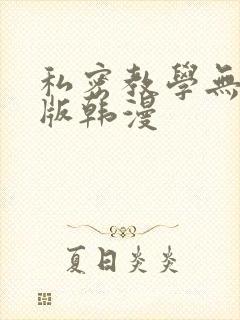 私密教學無
版韩漫
夏日炎炎